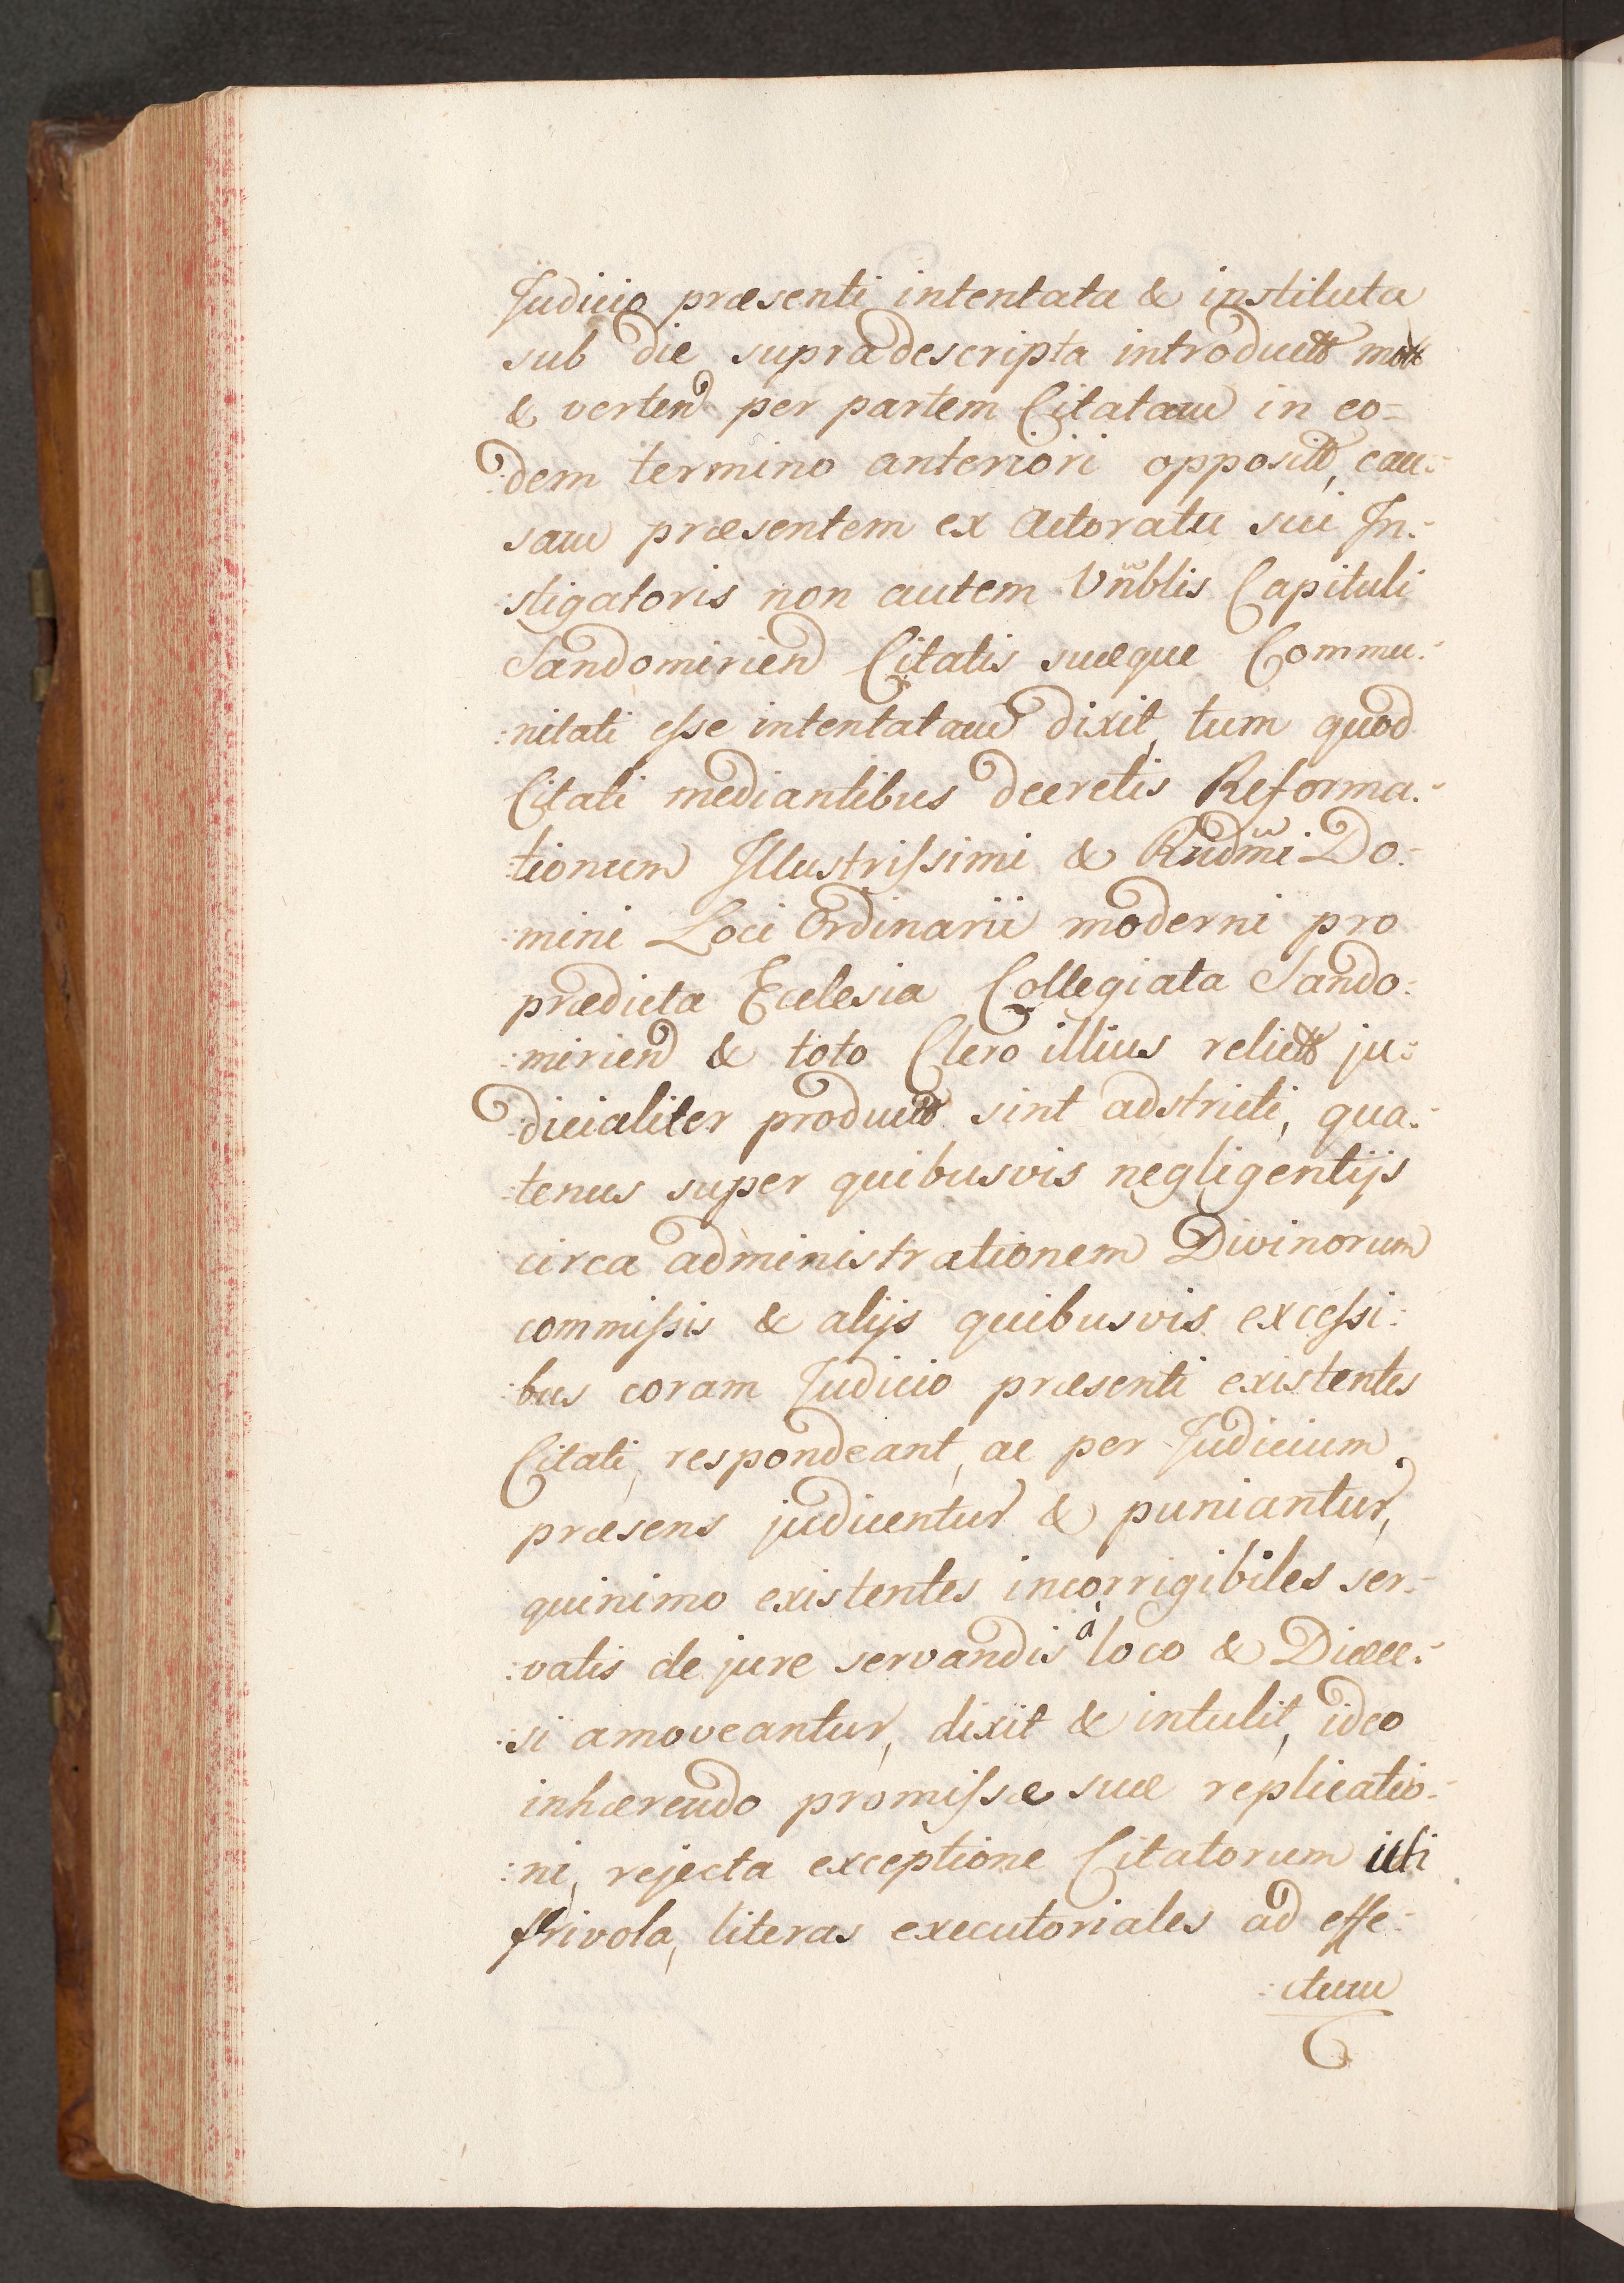 Judicio præsenti intentata & instituta
sub die supradescripta introductt mott
& vertend per partem Citatam in eo=
dem termino anteriori opposit, cau=
sam præsentem ex Actoratu sui In=
:stigatoris non autem Vnblis Capituli
Sandomiriend Citatis suæque Commu=
:nitati esse intentatam dixit, tum quod
Citati mediantibus decretis Reforma=
:tionum Illustrissimi & Rndmi Do=
:mini Loci Ordinarii moderni pro
prædicta Ecclesia Collegiata Sando:
:miriend & toto Clero illius relictt ju=
:dicialiter productt sint adstricti, qua=
:tenus super quibusvis negligentijs
circa administrationem Divinorum
commissis & alijs quibusvis excessi:
:bus coram Judicio præsenti existentes
Citati, respondeant, ac per Judicium
præsens judicentur & puniantur,
quinimo existentes incorrigibiles ser=
:vatis de jure servandis à loco & Diæce=
:si amoveantur, dixit & intulit, ideo
inhærendo promissæ suæ replicatio=
:ni, rejecta exceptione Citatorum uti
frivola, literas executoriales ad effe:
:ctum